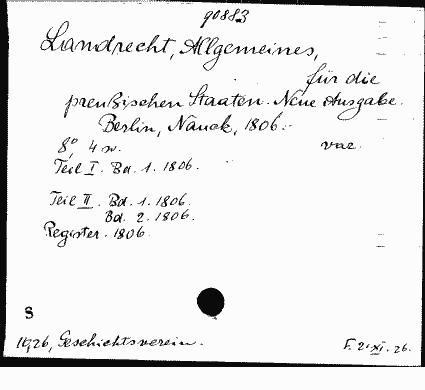 90883
Landrecht, Allgemeines,
für die
preußischen Staaten. Neue Ausgabe.
Berlin, Nauck, 1806.-
8,° 4 w. vac.
Teil I. Bd. 1. 1806.
Teil II. Bd. 1. 1806.
Bd. 2. 1806.
Register. 1806.
8
16,26, Geschichtsverein.
F. 2. XI. 26.